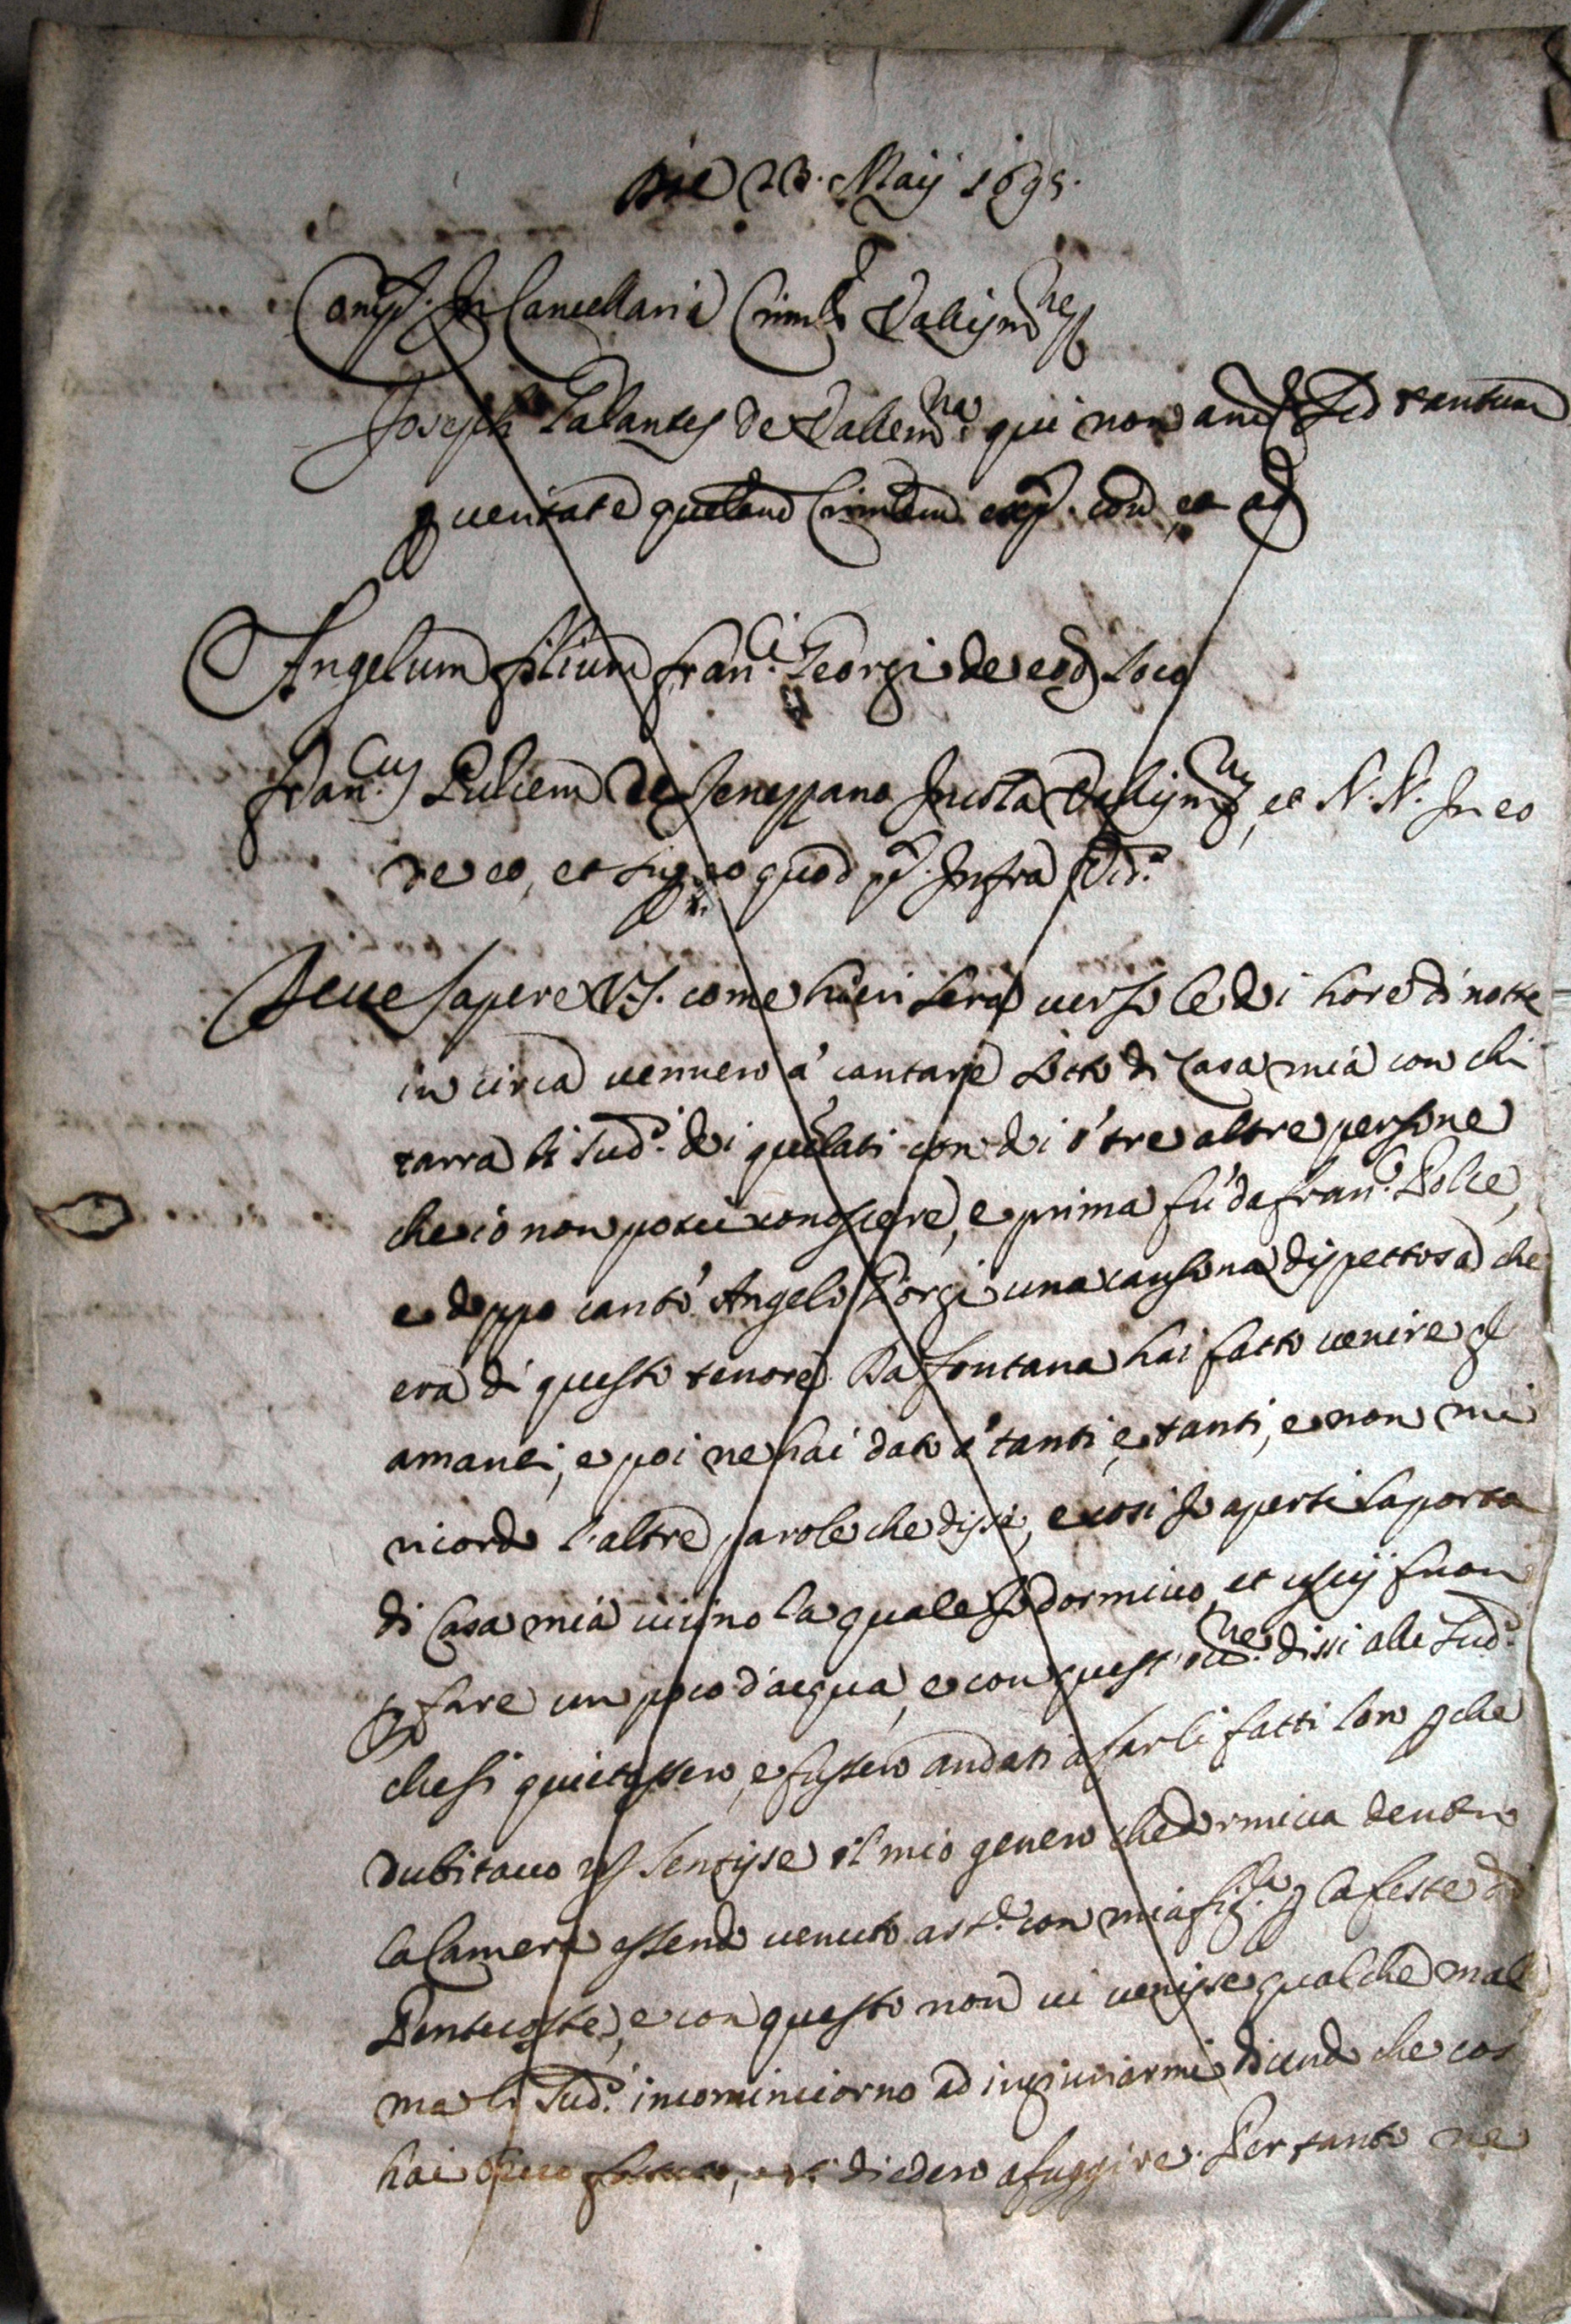 Die 23. Maij 1695.
Comp. In Cancellaria Crimli Vallismne
Joseph Galantes de Vallemna qui non aud sed tantum
p veritate quereland Crimlem exp. cond, et ad
Angelum filium Franci Georgi de eod loco
Francus Pulcem de Ienezzano Incola Vallismne, et N.N. In eo
de eo, et sup eo quod pd. Infra Vid.
Deve sapere V.S. come hieri sera verso le doi hore di notte
in circa vennero à cantare sotto di Casa mia con chi
tarra li sudi doi quelati con doi ò tre altre persone
che io non potei conoscere, e prima fù da Franco Polce,
e doppo cantò Angelo Giorgi una canzona dispettosa che
era di questo tenore. Da fontana hai fatto venire gl
amanti, e poi ne hai dato à tanti, e tanti, e non mi
ricordo l'altre parole che disse, e così Io apersi la porta
di Casa mia vicino la quale Io dormivo, et uscij fuori
p fare un poco d'acqua, e con quest' occne dissi alli sudi
che si quietassero, e fussero andati à farli fatti loro pche
dubitavo non sentisse il mio genero che dormiva dentro
la Camera essendo venuto con mia figla p la feste di
Pentecoste, e con questo non vi venisse qualche male
ma li sudi incominciorno ad ingiuriarmi dicendo che cos
hai diedero a fuggire. Per tanto ne